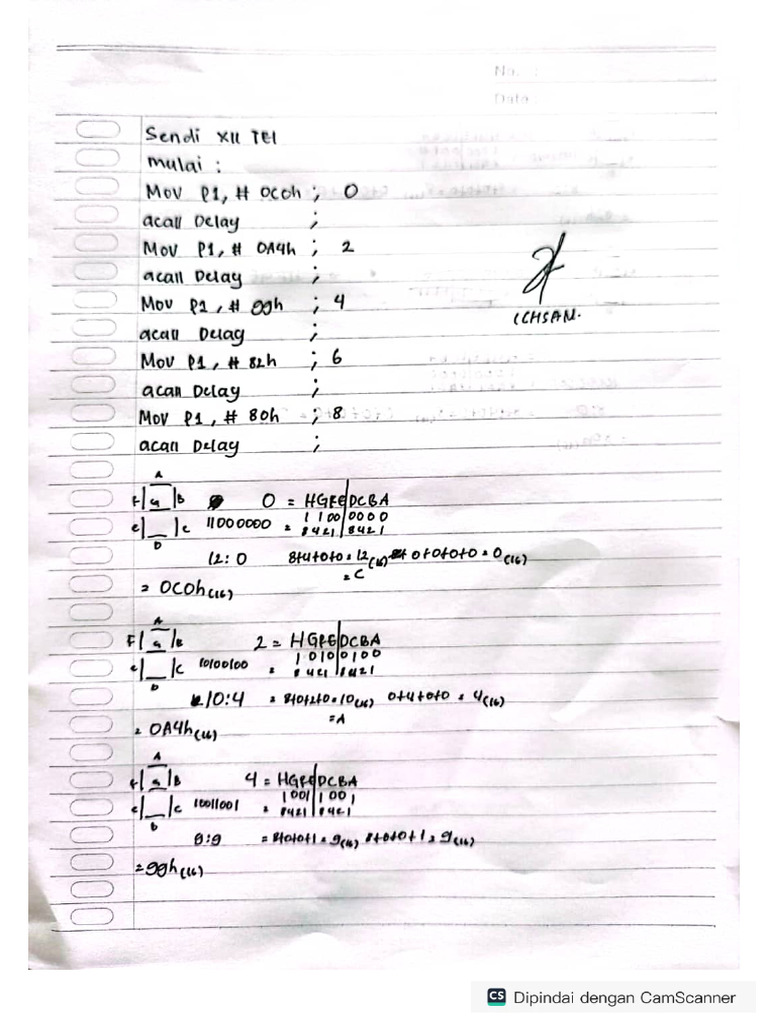 No. :
Date :
Sendi XII TEI
mulai :
Mov P1, # 0C0h ; 0
acall Delay ;
Mov P1, # 0A4h ; 2
acall Delay ;
Mov P1, # 99h ; 4
acall Delay ;
Mov P1, # 82h ; 6
acall Delay ;
Mov P1, # 80h ; 8
acall Delay ;
ICHSAN.
A
F G B 0 = HGFE DCBA
E C 11000000 = 1100 0000
D 8421 8421
12 : 0 8+4+0+0 = 12(16) 0+0+0+0 = 0(16)
= C
= 0C0h(16)
A
F G B 2 = HGFE DCBA
E C 10100100 = 1010 0100
D 8421 8421
10 : 4 = 8+0+2+0 = 10(16) 0+4+0+0 = 4(16)
= A
= 0A4h(16)
A
F G B 4 = HGFE DCBA
E C 10011001 = 1001 1001
D 8421 8421
9 : 9 = 8+0+0+1 = 9(16) 8+0+0+1 = 9(16)
= 99h(16)
CS Dipindai dengan CamScanner